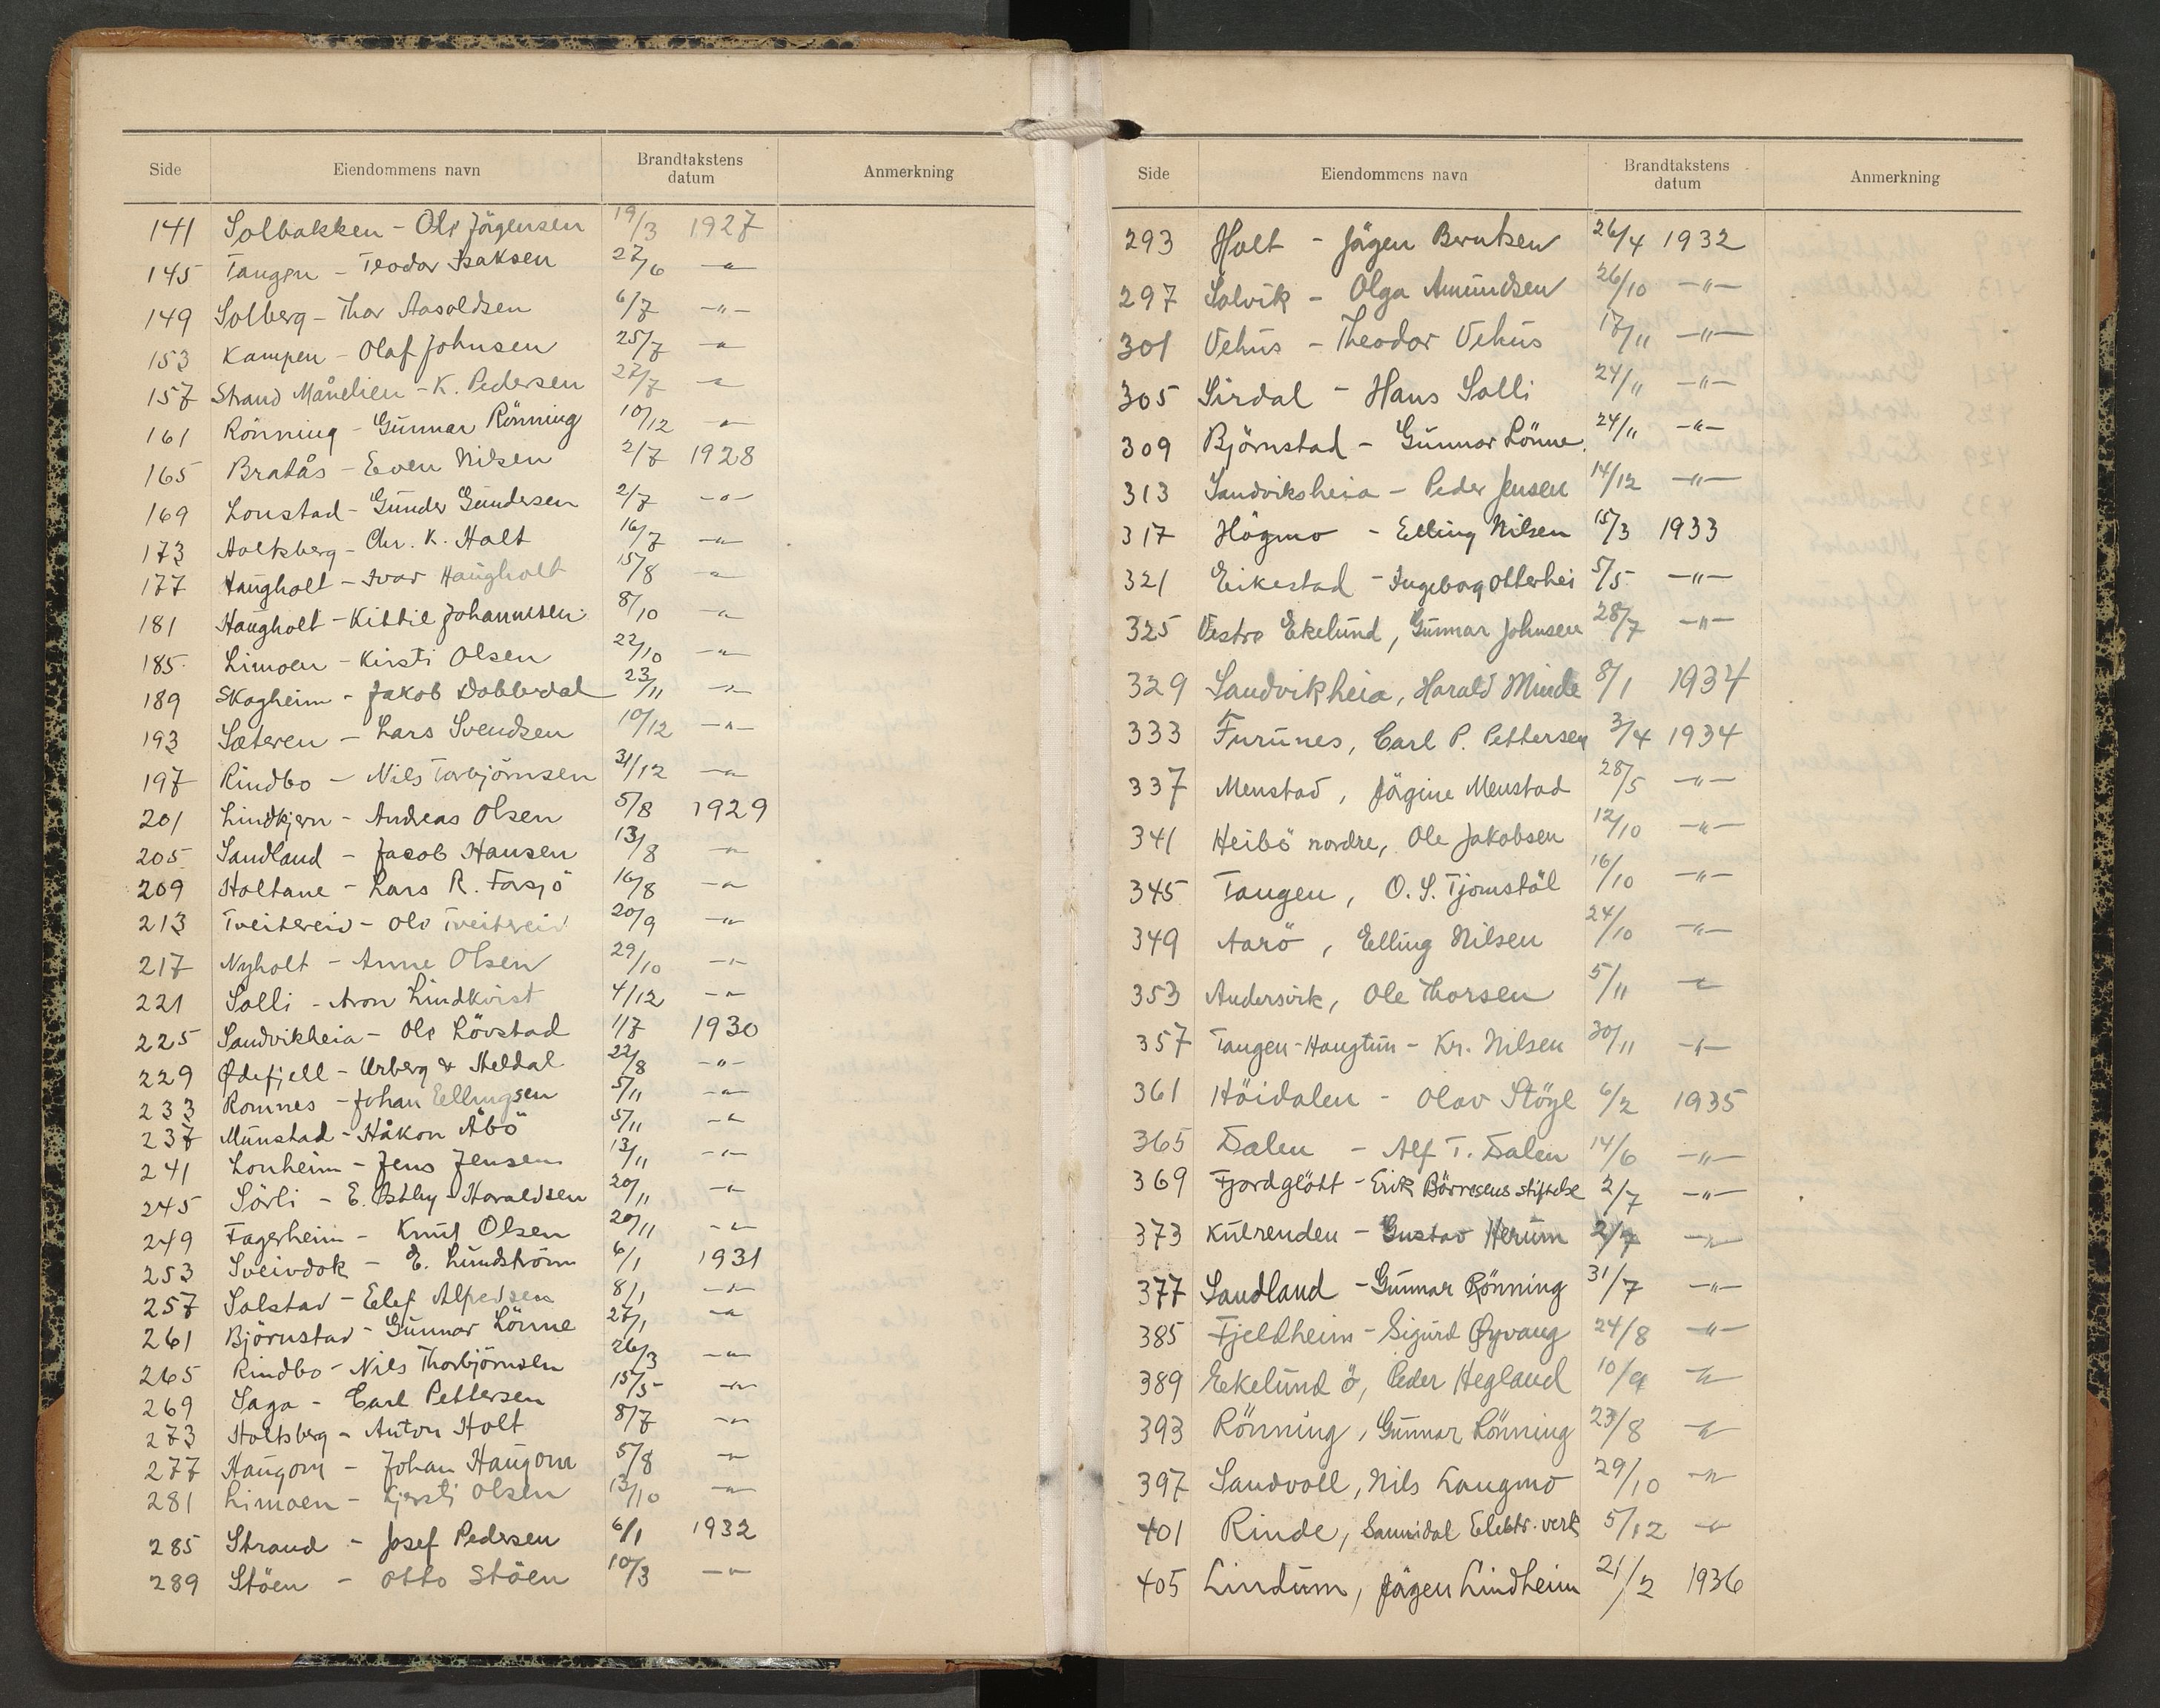 Side Eiendommens navn Brandtakstens datum Anmerkning
141 Solbakken - Ole Jögensen 19/3 1927
145 Tangen - Teodor Isaksen 27/6 -"-
149 Solberg - Thor Aasoldsen 6/7 -"-
153 Kampen - Olaf Johnsen 25/7 -"-
157 Strand Månelien - K. Pedersen 27/7 -"-
161 Rönning - Gunnar Rönning 10/12 -"-
165 Bratås - Even Nilsen 2/7 1928
169 Lonstad - Gunder Gundersen 2/7 -"-
173 Holtsberg - Chr. K. Holt 16/7 -"-
177 Haugholt - Ivar Haugholt 15/8 -"-
181 Haugholt - Kittil Johannesen 8/10 -"-
185 Limoen - Kirsti Olsen 22/10 -"-
189 Skogheim - Jakob Dobbedal 23/11 -"-
193 Sæteren - Lars Svendsen 10/12 -"-
197 Rindbo - Nils Torbjörnsen 31/12 -"-
201 Lindkjern - Andreas Olsen 5/8 1929
205 Sandland - Jacob Hansen 13/8 -"-
209 Holtane - Lars R. Farsjö 16/8 -"-
213 Tveitereid - Olav Tveitereid 20/9 -"-
217 Nyholt - Anne Olsen 29/10 -"-
221 Solli - Aron Lindkvist 4/12 -"-
225 Sandvikheia - Ole Lövstad 1/7 1930
229 Ødefjell - Urberg & Heldal 22/8 -"-
233 Romnes - Johan Ellingsen 5/11 -"-
237 Munstad - Håkon Åbö 5/11 -"-
241 Lonheim - Jens Jensen 13/11 -"-
245 Sörli - E. Østby-Haraldsen 20/11 -"-
249 Fagerheim - Knut Olsen 20/11 -"-
253 Sveivdok - E. Lundström 6/1 1931
257 Solstad - Elef Alfredsen 8/1 -"-
261 Björnstad - Gunnar Lönne 27/1 -"-
265 Rindbo - Nils Thorbjörnsen 26/3 -"-
269 Saga - Carl Pettersen 15/5 -"-
273 Holtsberg - Anton Holt 8/7 -"-
277 Haugom - Johan Haugom 5/8 -"-
281 Limoen - Kjersti Olsen 13/10 -"-
285 Strand - Josef Pedersen 6/1 1932
289 Stöen - Otto Stöen 10/3 -"-
Side Eiendommens navn Brandtakstens datum Anmerkning
293 Holt - Jögen Berntsen 26/4 1932
297 Solvik - Olga Amundsen 26/10 -"-
301 Vehus - Theodor Vehus 17/11 -"-
305 Sirdal - Hans Solli 24/11 -"-
309 Björnstad - Gunnar Lönne 24/11 -"-
313 Sandviksheia - Peder Jensen 14/12 -"-
317 Högmo - Elling Nilsen 15/3 1933
321 Eikestad - Ingebog Otterhei 5/5 -"-
325 Vestre Ekelund, Gunnar Johnsen 28/7 -"-
329 Sandvikheia, Harald Minde 8/1 1934
333 Furunes, Carl P. Pettersen 3/4 1934
337 Menstad, Jögine Menstad 28/5 -"-
341 Heibö nordre, Ole Jakobsen 12/10 -"-
345 Tangen, O. S. Tjomstöl 16/10 -"-
349 Aarö, Elling Nilsen 24/10 -"-
353 Andersvik, Ole Thorsen 5/11 -"-
357 Tangen-Haugtun - Kr. Nilsen 30/11 -"-
361 Höidalen - Olav Stöyl 6/2 1935
365 Dalen - Alf T. Dalen 14/6 -"-
369 Fjordglött - Erik Börresens stiftelse 2/7 -"-
373 Kulrenden - Gustav Herum 2/7 -"-
377 Sandland - Gunnar Rönning 31/7 -"-
385 Fjeldheim - Sigurd Øyvang 24/8 -"-
389 Ekelund ö, Peder Hegland 10/9 -"-
393 Rönning, Gunnar Rönning 23/8 -"-
397 Sandvoll, Nils Langmo 29/10 -"-
401 Rinde, Sannidal Elektr. verk 5/12 -"-
405 Lindum, Jögen Lindheim 21/2 1936